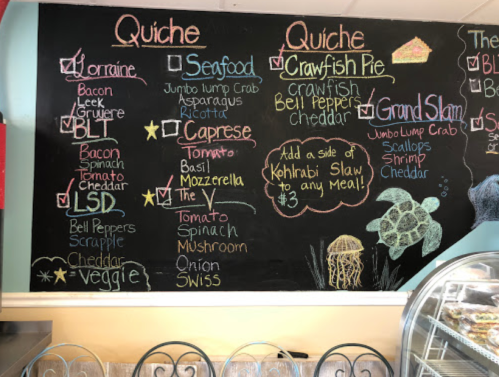 Quiche
Lorraine
Bacon
Leek
Gruyere
BLT
Bacon
Spinach
Tomato
Cheddar
LSD
Bell Peppers
Scrapple
Cheddar
= veggie
Seafood
Jumbo lump Crab
Asparagus
Ricotta
Caprese
Tomato
Basil
Mozzerella
The V
Tomato
Spinach
Mushroom
Onion
Swiss
Quiche
Crawfish Pie
crawfish
Bell Peppers
cheddar
Grand Slam
Jumbo Lump Crab
Scallops
Shrimp
Cheddar
Add a side of
Kohlrabi Slaw
to any Meal!
$3
The
BL